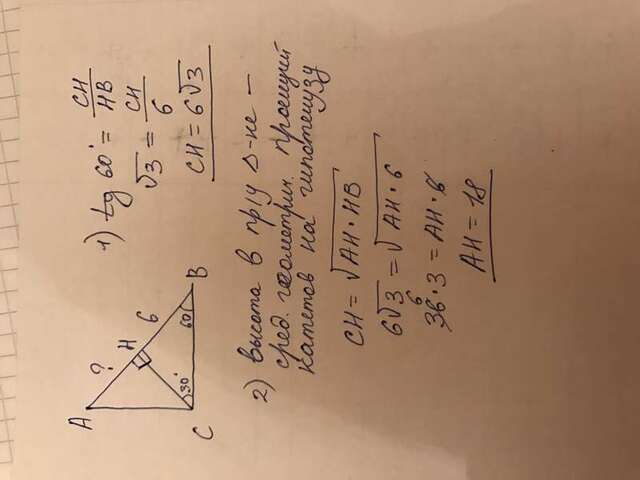 A
?
H
6
C
30°
60
B
1) tg 60° = CH/HB
√3 = CH/6
CH = 6√3
2) высота в пр/у Δ-не –
сред. геометрич. проекций
катетов на гипотенузу
CH = √AH · HB
6√3 = √AH · 6
6
36 · 3 = AH · 6
AH = 18